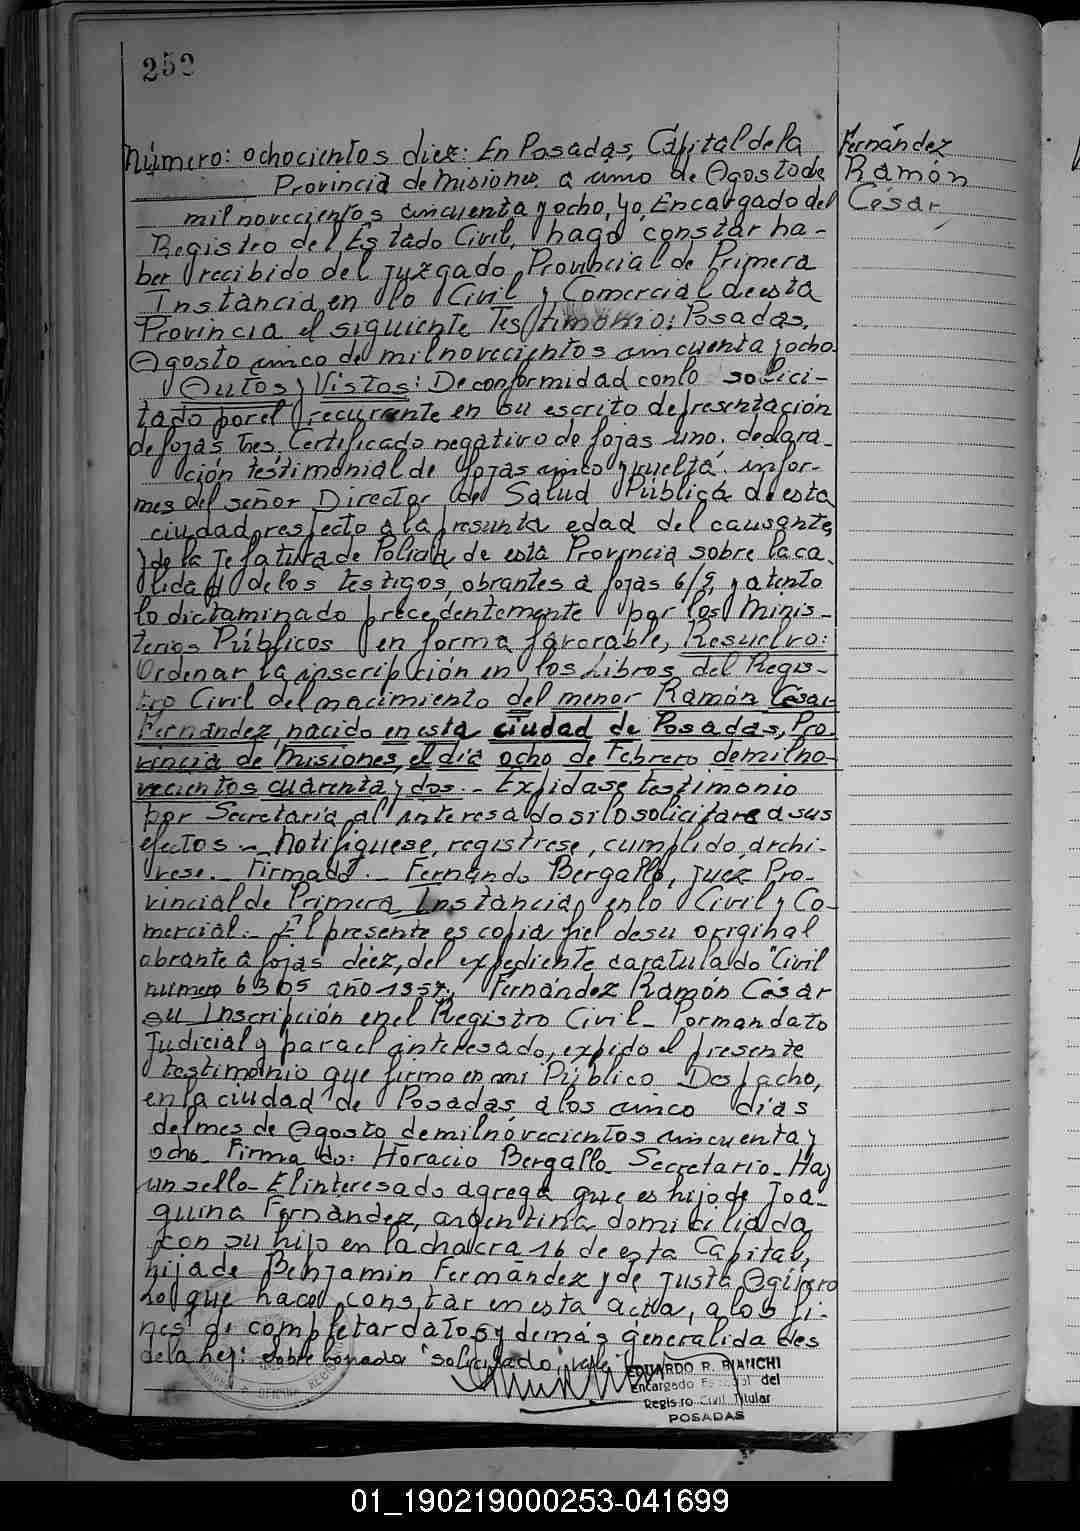 252
Número: ochocientos diez: En Posadas, Capital de la
Provincia de Misiones, a uno de Agosto de
mil novecientos cincuenta y ocho, yo, Encargado del
Registro del Estado Civil, hago constar ha-
ber recibido del juzgado Provincial de Primera
Instancia en lo Civil y Comercial de esta
Provincia el siguiente Testimonio: Posadas,
Agosto cinco de mil novecientos cincuenta y ocho.
Autos y Vistos: De conformidad con lo solici-
tado por el recurrente en su escrito de presentación
de fojas tres, Certificado negativo de fojas uno, declara-
ción testimonial de fojas cinco y vuelta, infor-
mes del señor Director de Salud Pública de esta
ciudad respecto a la presunta edad del causante,
y de la Jefatura de Policía de esta Provincia sobre la ca-
lidad de los testigos, obrantes a fojas 6/9, y atento
lo dictaminado precedentemente por los Minis-
terios Públicos en forma favorable, Resuelvo:
Ordenar la inscripción en los Libros del Regis-
tro Civil del nacimiento del menor Ramón César
Fernández, nacido en esta ciudad de Posadas, Pro-
vincia de Misiones, el día ocho de Febrero de mil no-
vecientos cuarenta y dos.- Expidase testimonio
por Secretaría al interesado si lo solicitare a sus
efectos.- Notifiquese, registrese, cumplido, archi-
vese.- Firmado.- Fernando Bergallo, juez Pro-
vincial de Primera Instancia en lo Civil y Co-
mercial.- El presente es copia fiel de su original
obrante a fojas diez, del expediente caratulado "Civil
numero 6305 año 1957, Fernández Ramón César
su Inscripción en el Registro Civil- Por mandato
Judicial y para el interesado, expido el presente
testimonio que firmo en mi Público Despacho,
en la ciudad de Posadas a los cinco días
del mes de Agosto de mil novecientos cincuenta y
ocho- Firmado: Horacio Bergallo- Secretario- Hay
un sello- El interesado agrega que es hijo de Joa-
quina Fernández, argentina domiciliada
con su hijo en la chacra 16 de esta Capital,
hija de Benjamín Fernández y de Justa Agüero
Lo que hace constar en esta acta, a los fi-
nes de completar datos y demás generalidades
de la ley: sobre borrado "solicitado" vale.
EDUARDO R. BIANCHI
Encargado del
Registro Civil Titular
POSADAS
Fernández
Ramón
César
01_190219000253-041699